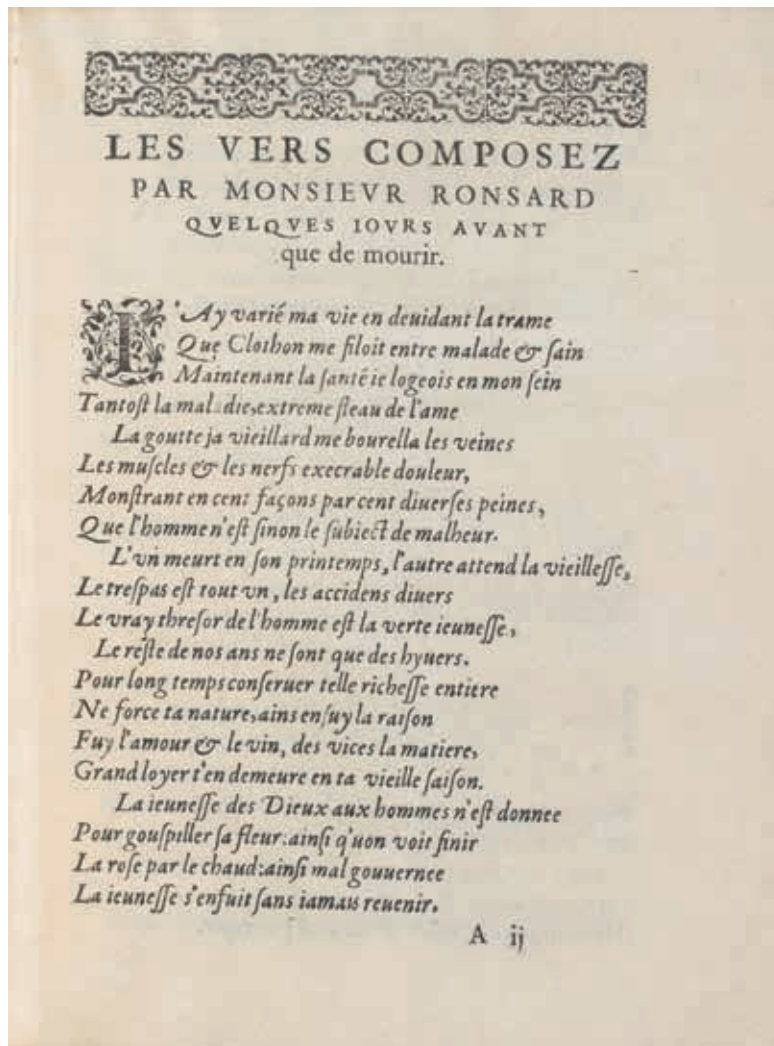 LES VERS COMPOSEZ
PAR MONSIEVR RONSARD
QVELQVES IOVRS AVANT
que de mourir.
I'Ay varié ma vie en deuidant la trame
Que Clothon me filoit entre malade & ſain
Maintenant la ſanté ie logeois en mon ſein
Tantoſt la maladie, extreme fleau de l'ame
La goutte ja vieillard me bourella les veines
Les muſcles & les nerfs execrable douleur,
Monſtrant en cent façons par cent diuerſes peines,
Que l'homme n'eſt ſinon le ſubiect de malheur.
L'vn meurt en ſon printemps, l'autre attend la vieilleſſe,
Le treſpas eſt tout vn, les accidens diuers
Le vray threſor de l'homme eſt la verte ieuneſſe,
Le reſte de nos ans ne ſont que des hyuers.
Pour long temps conſeruer telle richeſſe entiere
Ne force ta nature, ains enſuy la raiſon
Fuy l'amour & le vin, des vices la matiere,
Grand loyer t'en demeure en ta vieille ſaiſon.
La ieuneſſe des Dieux aux hommes n'eſt donnee
Pour gouſpiller ſa fleur: ainſi q'uon voit finir
La roſe par le chaud: ainſi mal gouuernee
La ieuneſſe s'enfuit ſans iamais reuenir.
A ij